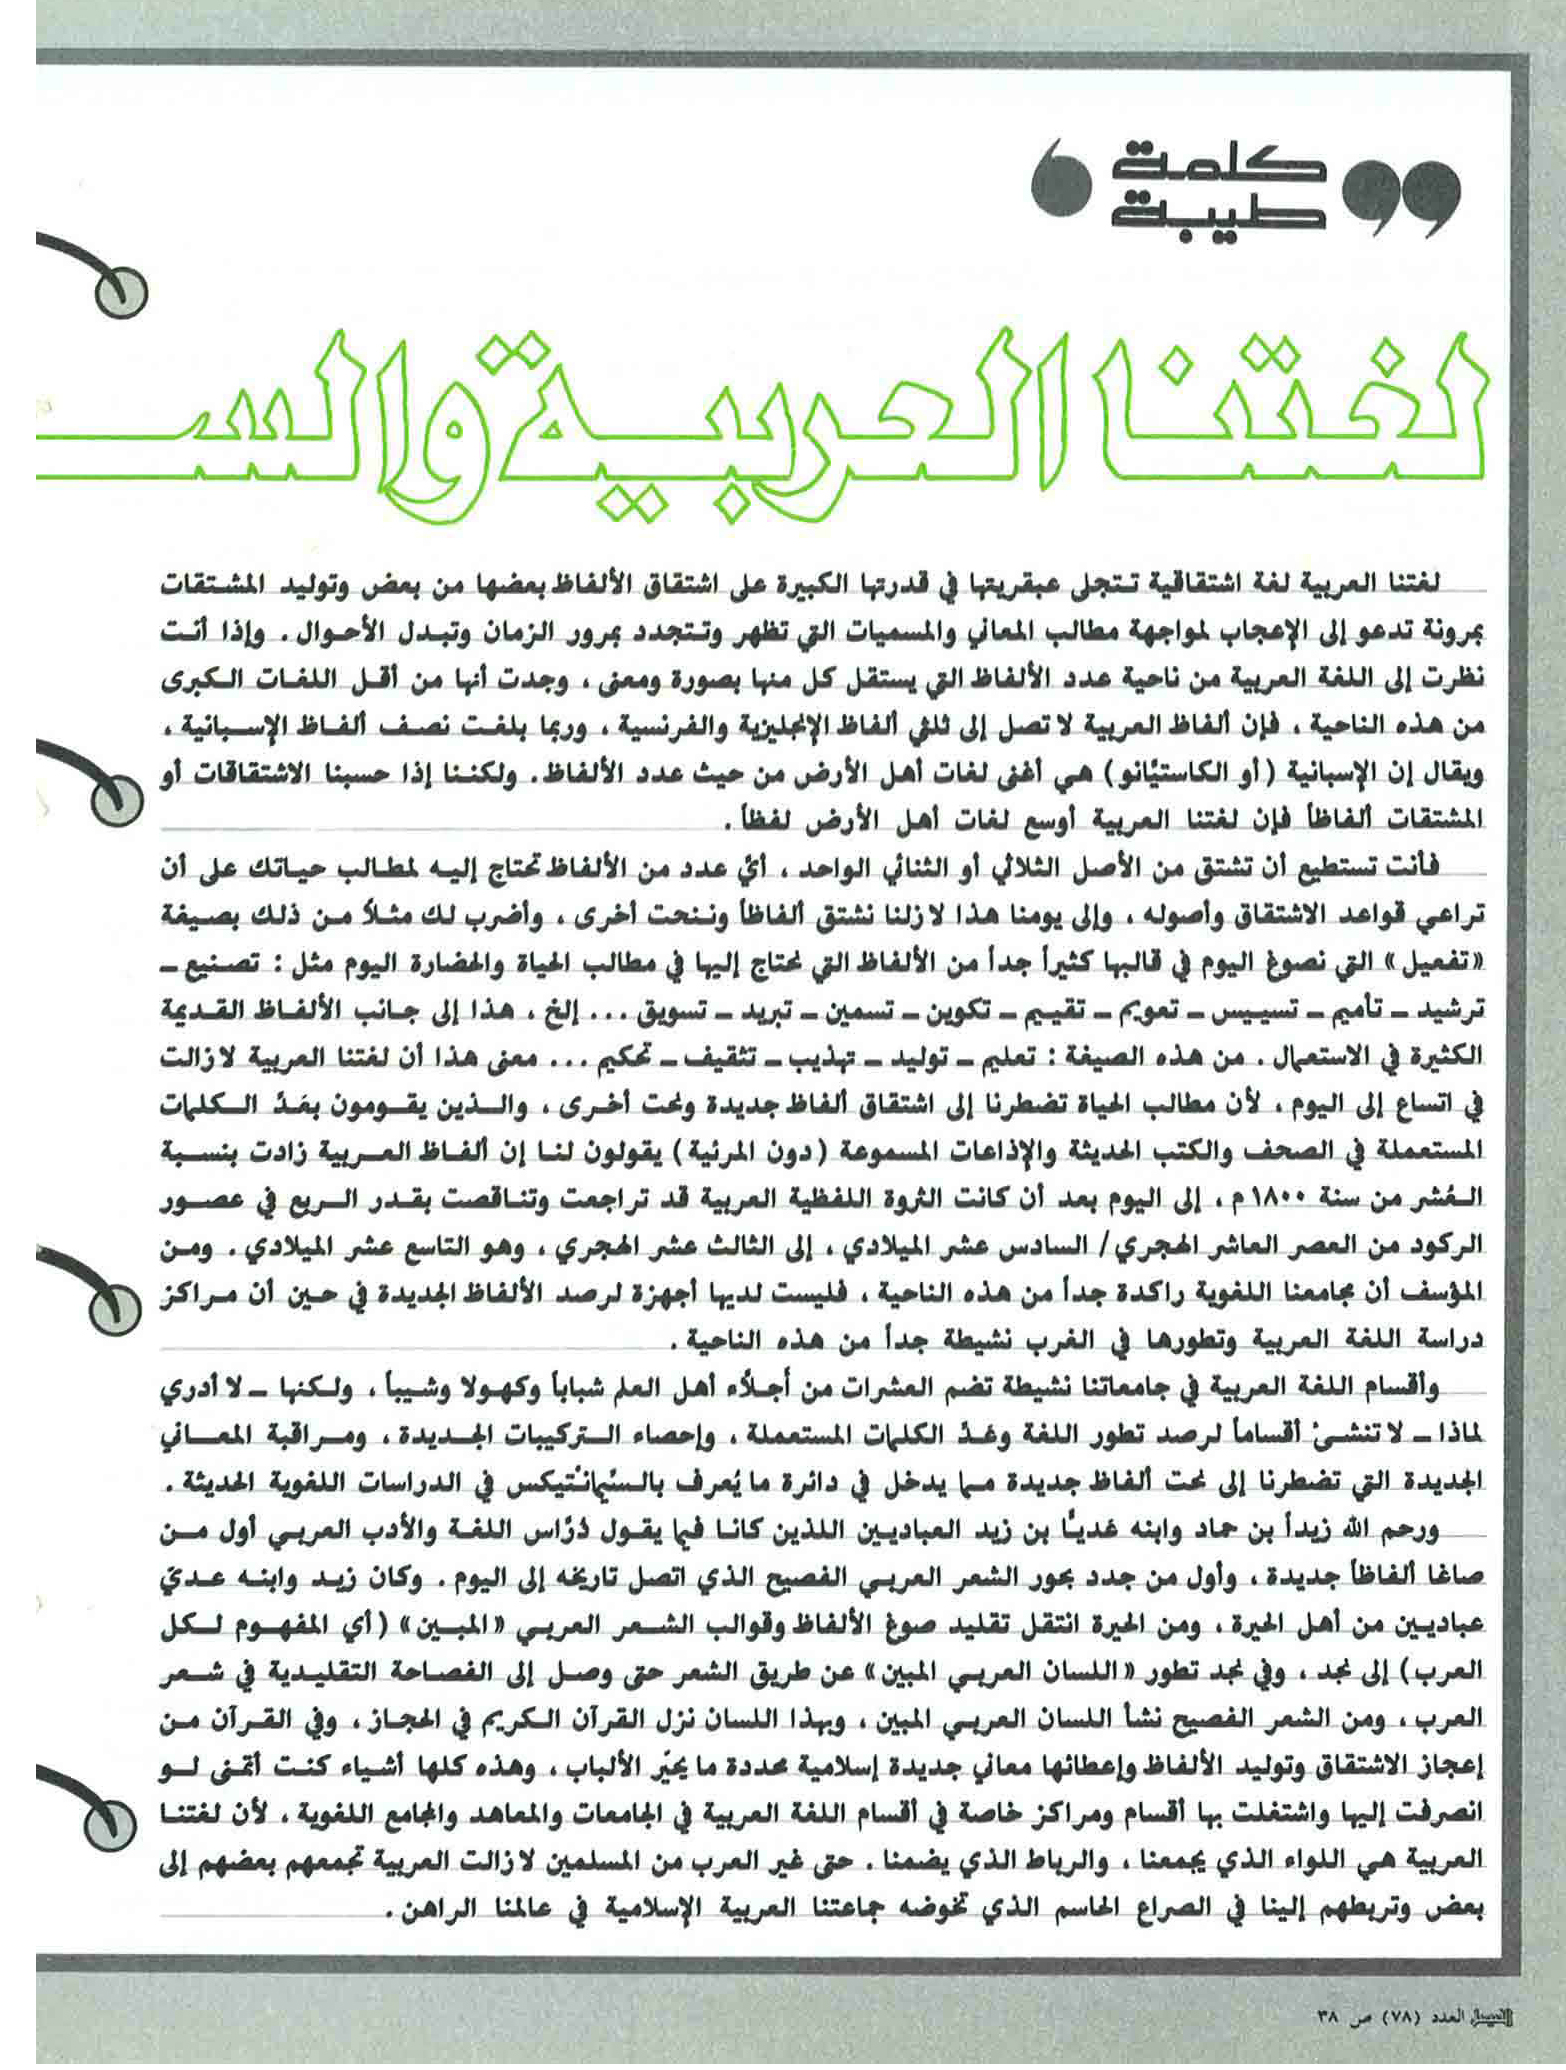 كلمة
طيبة
لغتنا العربية والسـ
لغتنا العربية لغة اشتقاقية تتجلى عبقريتها في قدرتها الكبيرة على اشتقاق الألفاظ بعضها من بعض وتوليد المشتقات
بمرونة تدعو إلى الإعجاب لمواجهة مطالب المعاني والمسميات التي تظهر وتتجدد بمرور الزمان وتبدل الأحوال . وإذا أنت
نظرت إلى اللغة العربية من ناحية عدد الألفاظ التي يستقل كل منها بصورة ومعنى ، وجدت أنها من أقل اللغات الكبرى
من هذه الناحية ، فإن ألفاظ العربية لا تصل إلى ثلثي ألفاظ الإنجليزية والفرنسية ، وربما بلغت نصف ألفاظ الإسبانية ،
ويقال إن الإسبانية (أو الكاستيّانو) هي أغنى لغات أهل الأرض من حيث عدد الألفاظ . ولكننا إذا حسبنا الاشتقاقات أو
المشتقات ألفاظاً فإن لغتنا العربية أوسع لغات أهل الأرض لفظاً .
فأنت تستطيع أن تشتق من الأصل الثلاثي أو الثنائي الواحد ، أيّ عدد من الألفاظ تحتاج إليه لمطالب حياتك على أن
تراعي قواعد الاشتقاق وأصوله ، وإلى يومنا هذا لازلنا نشتق ألفاظاً وننحت أخرى ، وأضرب لك مثلاً من ذلك بصيغة
«تفعيل» التي نصوغ اليوم في قالبها كثيراً جداً من الألفاظ التي نحتاج إليها في مطالب الحياة والحضارة اليوم مثل : تصنيع ـ
ترشيد ـ تأميم ـ تسييس ـ تعويم ـ تقييم ـ تكوين ـ تسمين ـ تبريد ـ تسويق ... إلخ ، هذا إلى جانب الألفاظ القديمة
الكثيرة في الاستعمال . من هذه الصيغة : تعليم ـ توليد ـ تهذيب ـ تثقيف ـ تحكيم ... معنى هذا أن لغتنا العربية لازالت
في اتساع إلى اليوم ، لأن مطالب الحياة تضطرنا إلى اشتقاق ألفاظ جديدة ونحت أخرى ، والذين يقومون بعَدّ الكلمات
المستعملة في الصحف والكتب الحديثة والإذاعات المسموعة (دون المرئية) يقولون لنا إن ألفاظ العربية زادت بنسبة
العُشر من سنة ١٨٠٠م ، إلى اليوم بعد أن كانت الثروة اللفظية العربية قد تراجعت وتناقصت بقدر الربع في عصور
الركود من العصر العاشر الهجري/ السادس عشر الميلادي ، إلى الثالث عشر الهجري ، وهو التاسع عشر الميلادي . ومن
المؤسف أن مجامعنا اللغوية راكدة جداً من هذه الناحية ، فليست لديها أجهزة لرصد الألفاظ الجديدة في حين أن مراكز
دراسة اللغة العربية وتطورها في الغرب نشيطة جداً من هذه الناحية .
وأقسام اللغة العربية في جامعاتنا نشيطة تضم العشرات من أجلّاء أهل العلم شباباً وكهولا وشيباً ، ولكنها ـ لا أدري
لماذا ـ لا تنشئ أقساماً لرصد تطور اللغة وعَدّ الكلمات المستعملة ، وإحصاء التركيبات الجديدة ، ومراقبة المعاني
الجديدة التي تضطرنا إلى نحت ألفاظ جديدة مما يدخل في دائرة ما يُعرف بالسّيمانْتيكس في الدراسات اللغوية الحديثة .
ورحم الله زيداً بن حماد وابنه عَديّاً بن زيد العباديين اللذين كانا فيما يقول دُرّاس اللغة والأدب العربي أول من
صاغا ألفاظاً جديدة ، وأول من جدد بحور الشعر العربي الفصيح الذي اتصل تاريخه إلى اليوم . وكان زيد وابنه عديّ
عباديين من أهل الحيرة ، ومن الحيرة انتقل تقليد صوغ الألفاظ وقوالب الشعر العربي «المبين» (أي المفهوم لكل
العرب) إلى نجد ، وفي نجد تطور «اللسان العربي المبين» عن طريق الشعر حتى وصل إلى الفصاحة التقليدية في شعر
العرب ، ومن الشعر الفصيح نشأ اللسان العربي المبين ، وبهذا اللسان نزل القرآن الكريم في الحجاز ، وفي القرآن من
إعجاز الاشتقاق وتوليد الألفاظ وإعطائها معاني جديدة إسلامية محددة ما يحيّر الألباب ، وهذه كلها أشياء كنت أتمنى لو
انصرفت إليها واشتغلت بها أقسام ومراكز خاصة في أقسام اللغة العربية في الجامعات والمعاهد والمجامع اللغوية ، لأن لغتنا
العربية هي اللواء الذي يجمعنا ، والرباط الذي يضمنا . حتى غير العرب من المسلمين لازالت العربية تجمعهم بعضهم إلى
بعض وتربطهم إلينا في الصراع الحاسم الذي تخوضه جماعتنا العربية الإسلامية في عالمنا الراهن .
الفيصل العدد (٧٨) ص ٣٨